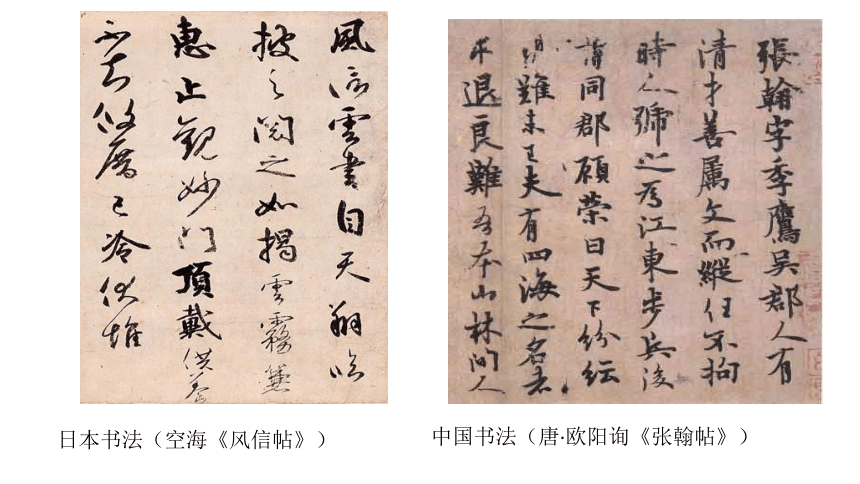 風信雲書自天翔臨
披之閱之如揭雲霧兼
惠止觀妙門頂戴供養
不知攸厝已冷伏惟
張翰字季鷹吳郡人有
清才善屬文而縱任不拘
時人號之為江東步兵後
謂同郡顧榮曰天下紛紜
禍難未已夫有四海之名者
求退良難吾本山林間人
日本书法（空海《风信帖》）
中国书法（唐·欧阳询《张翰帖》）